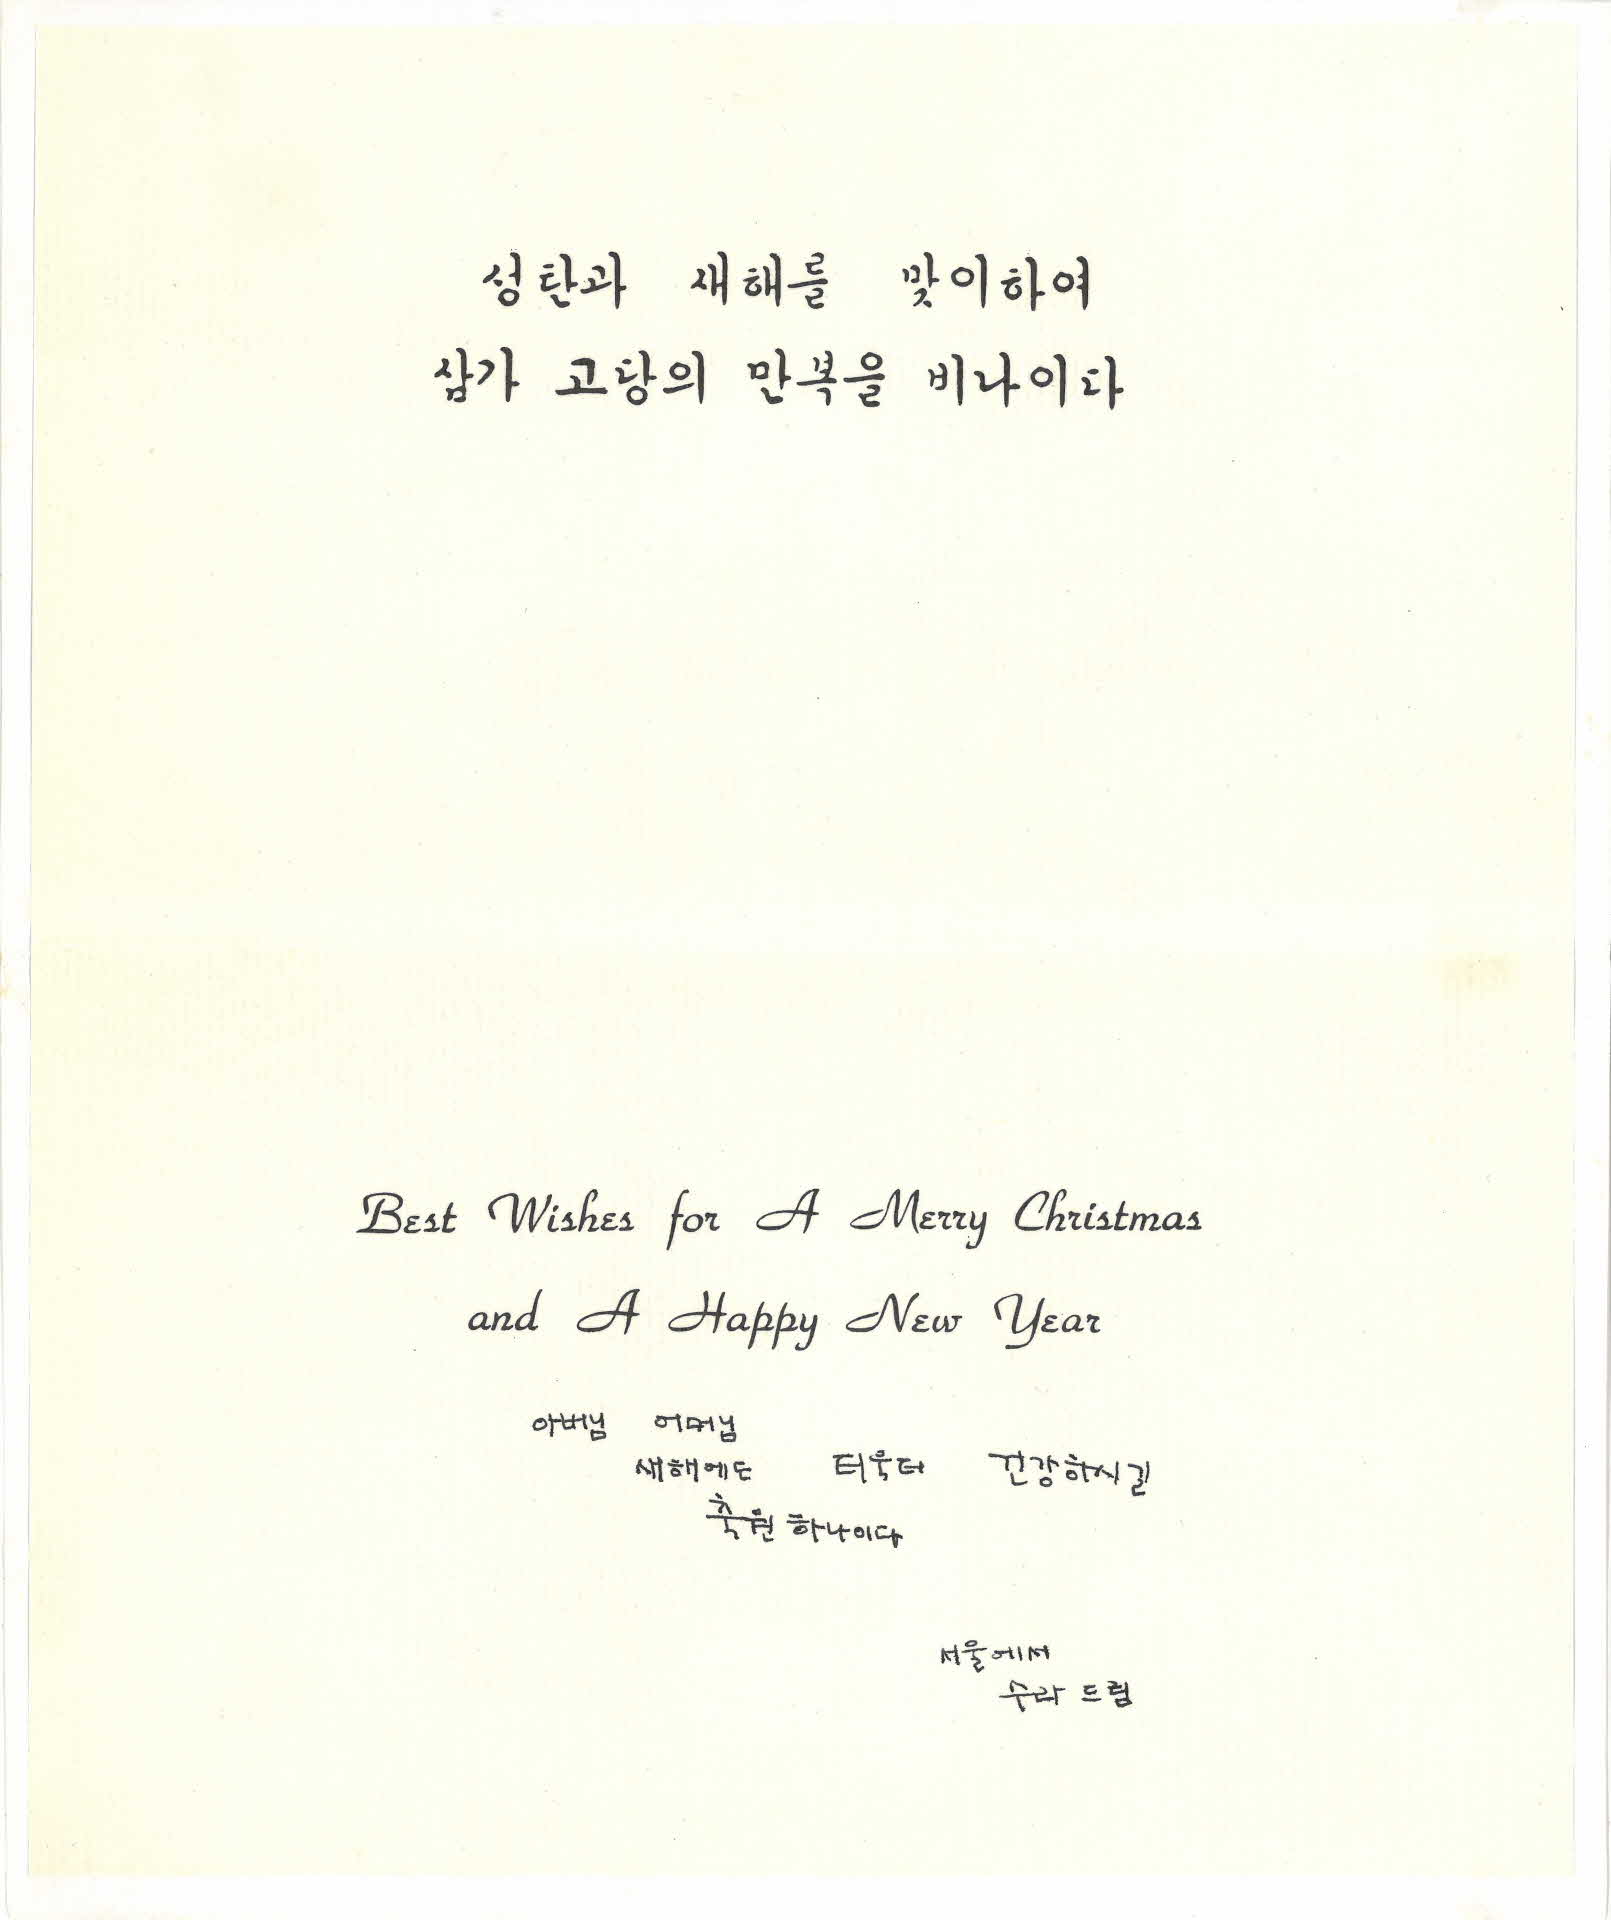 성탄과 새해를 맞이하여
삼가 고당의 만복을 비나이다
Best Wishes for A Merry Christmas
and A Happy New Year
아버님 어머님
새해에도 더욱더 건강하시길
축원 하나이다
서울에서
수라 드림